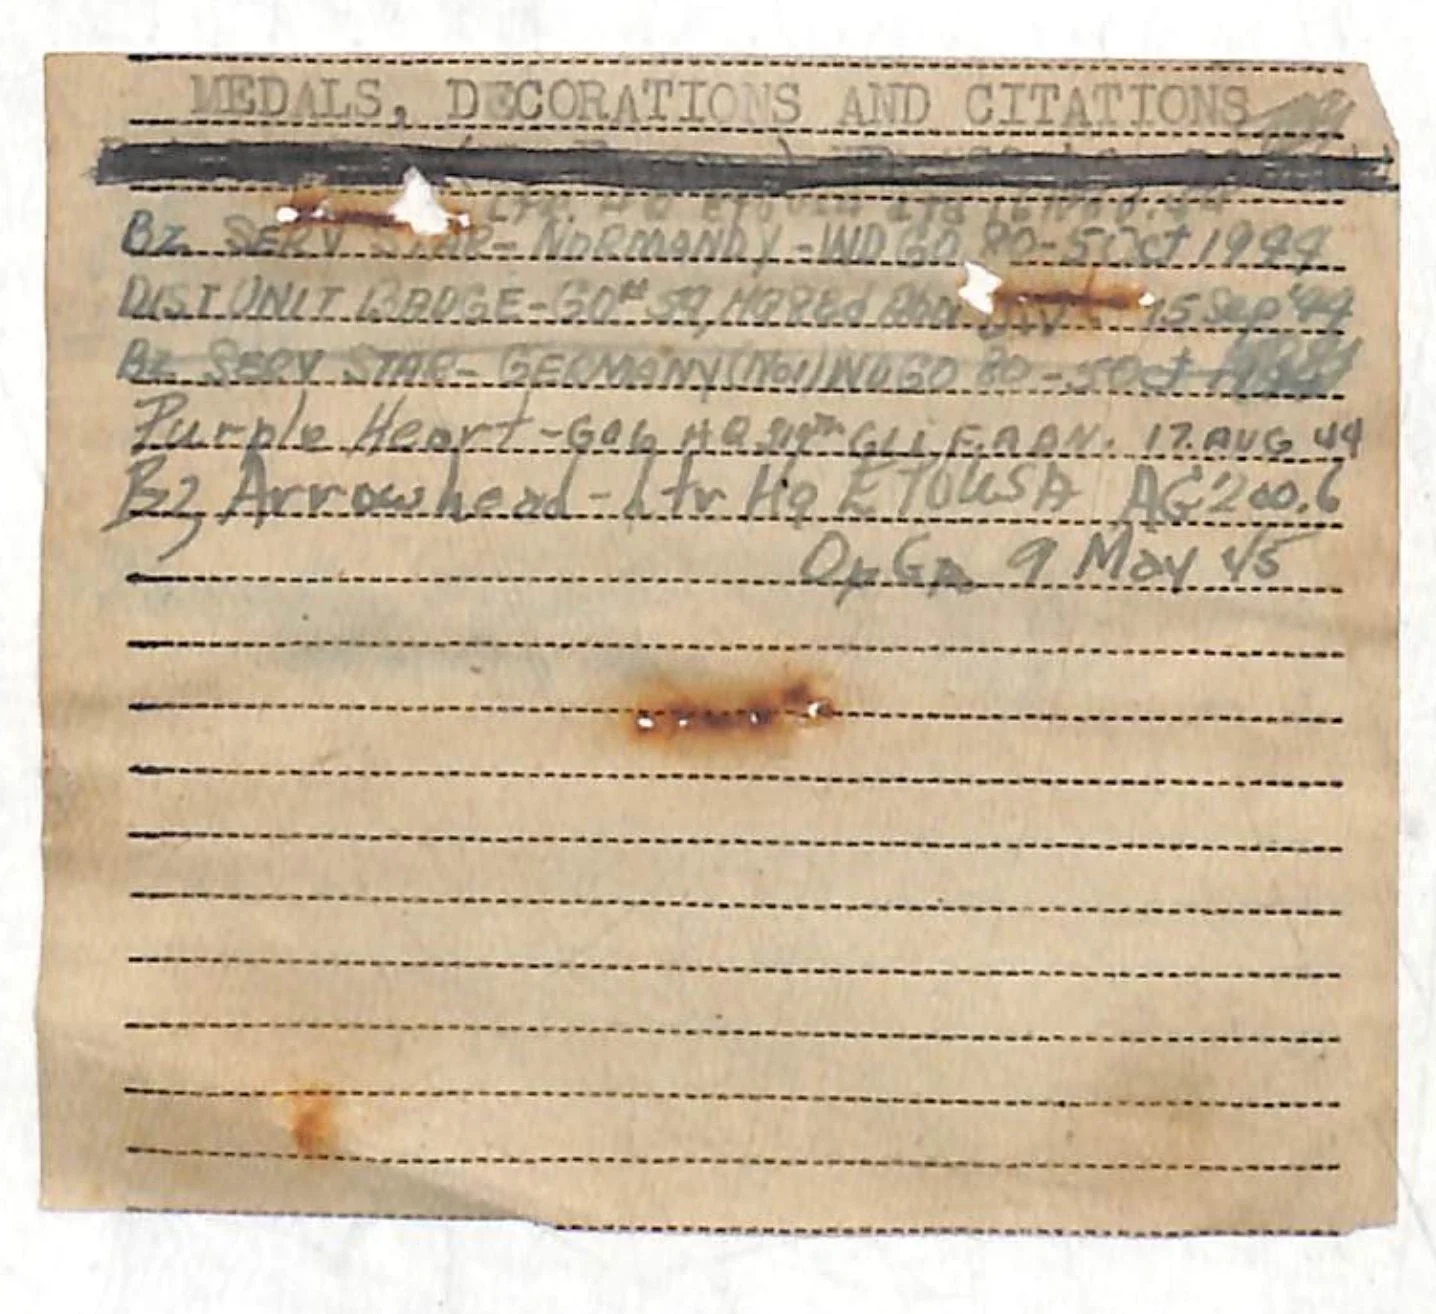 MEDALS, DECORATIONS AND CITATIONS
Bz SERV STAR - NORMANDY - WD GO 80 - 5 Oct 1944
DIST UNIT BADGE - GO # 59, HQ 82d Abn DIV 15 Sep '44
Bz SERV STAR - GERMANY (No 1) WD GO 80 - 5 Oct
Purple Heart - GO 6 HQ 319th GLI F.A BN. 17. AUG 44
Bz Arrowhead - Ltr Hq ETOUSA AG 200.6
Op GA 9 May 45